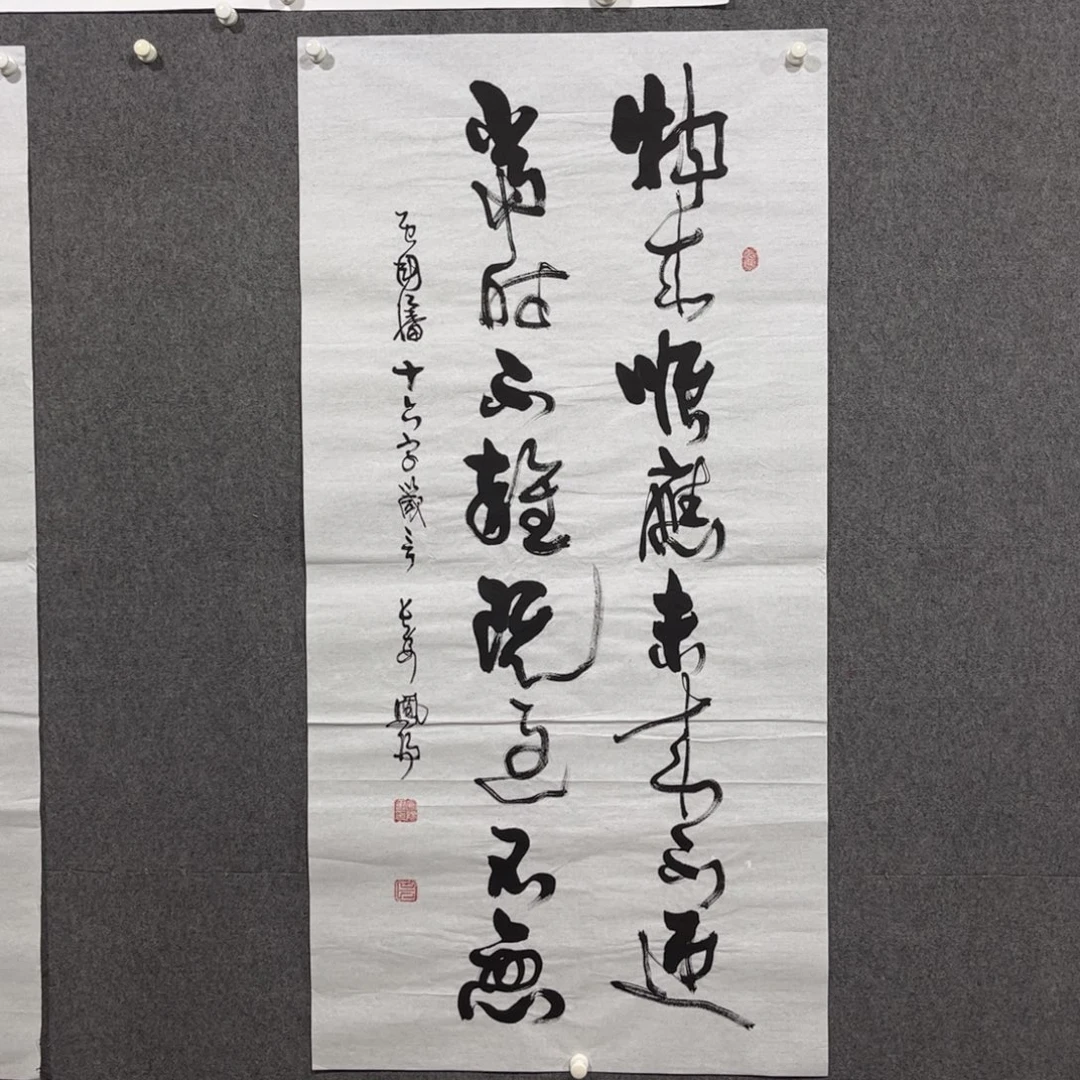 物来順應未来不迎
當時不雜既過不恋
曾國藩十六字箴言 長安